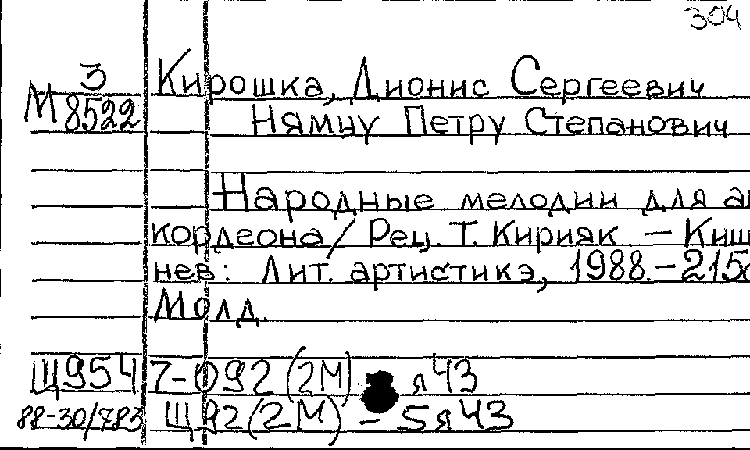 304
3 Кирошка, Дионис Сергеевич
М8522 Нямцу Петру Степанович
Народные мелодии для ак
кордеона/ Рец. Т. Кирияк. — Киш
нев: Лит. артистикэ, 1988. — 215с
Молд.
Щ9547-092(2М) я43
88-30/783 Щ92(2М) - 5я43